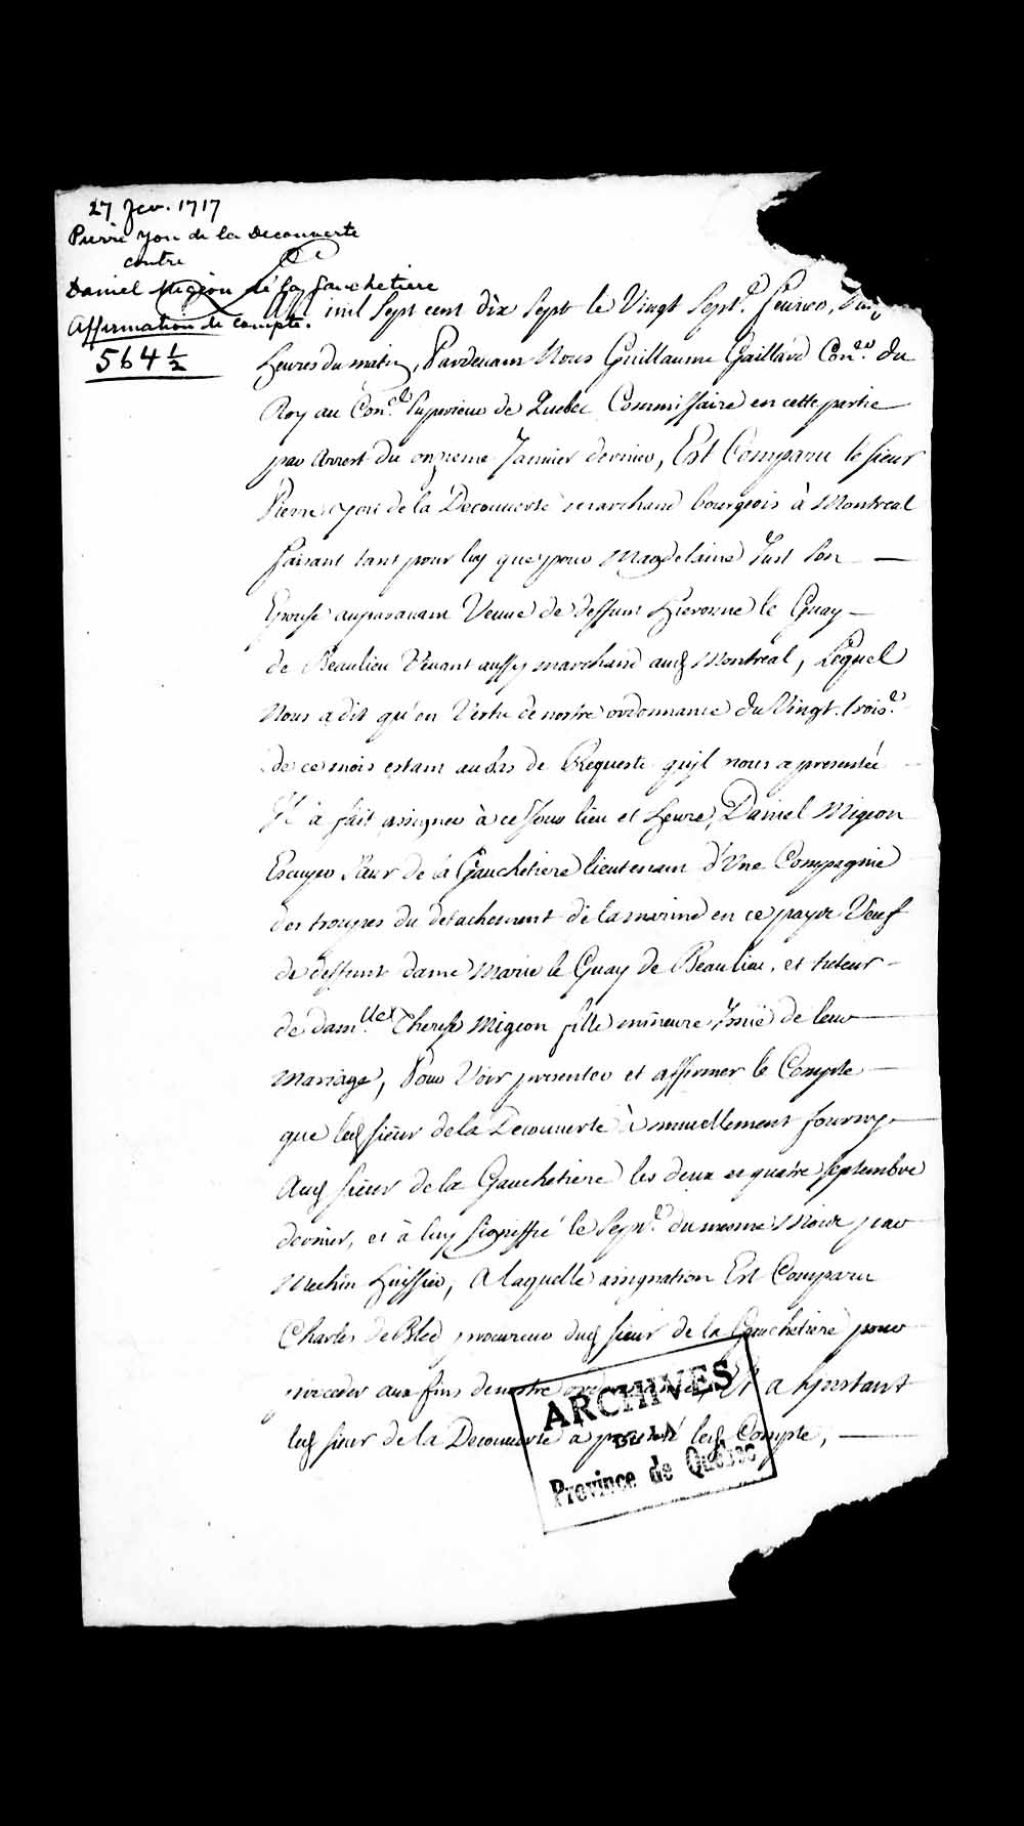 27 fev. 1717
Pierre Yon de la Decouverte
contre
Daniel Migeon de la Gauchetiere
Affirmation de compte.
564 1/2
mil Sept cent dix Sept le Vingt Sept.e feurier,
heures du matin, Pardeuant Nous Guillaume Gaillard Con.er du
Roy au Con.el Superieur de Quebec Commissaire en cette partie
par Arrest du onzieme Januier dernier, Est Comparu le sieur
Pierre yon de la Decouuerte marchand bourgeois à Montreal
faisant tant pour luy que pour Magdelaine Just son —
Epouse auparauant Veuue de deffunt Hierosme le Guay —
de Beaulieu Viuant aussy marchand aud Montreal, Lequel
Nous a dit qu'en Vertu de nostre ordonnance du Vingt. trois.e
de ce mois estant au bas de Requeste qu'jl nous a presentée
Jl à fait assigner à ce Jour lieu et heure, Daniel Migeon
Escuyer Sieur de la Gauchetiere lieutenant d'Vne Compagnie
des troupes du detachement de la marine en ce payis Veuf
de deffunte dame Marie le Guay de Beaulieu, et tuteur —
de dam.lle Therese Migeon fille mineure Jssüe de leur —
mariage, Pour Voir presenter et affirmer le Compte —
que led sieur de la Decouuerte à mutuellement fourny —
Aud sieur de la Gauchetiere les deux et quatre septembre
dernier, et à luy signiffié le Sept.e du mesme Mois par
Meschin huissier, A laquelle assignation Est Comparu
Charles De Bled procureur dud sieur de la Gauchetiere pour
proceder aux fins de nostre ordonnance, Et a Lynstant
led sieur de la Decouuerte à presenté led Compte, —
ARCHIVES
DE LA
Province de Québec